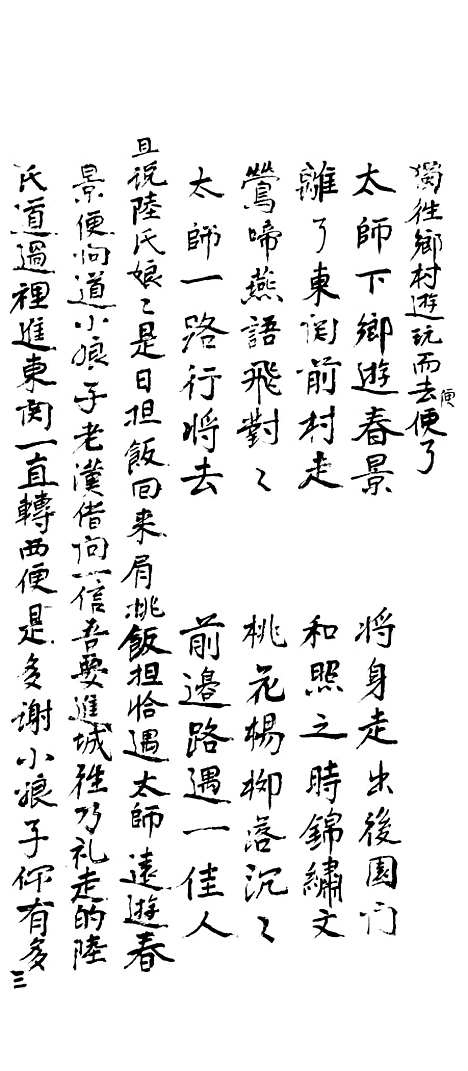 獨徃鄉村遊玩而去便了
便
太師下鄉遊春景　將身走出後園门
離了東関前村走　和照之時錦繡文
鶯啼燕語飛對〻　桃花楊柳落沉〻
太師一路行將去　前邊路遇一佳人
且说陸氏娘〻是日担飯回来肩挑飯担恰遇太師遠遊春
景便问道小娘子老漢借问一信吾要進城徃乃礼走的陸
氏道過裡進東関一直轉西便是多谢小娘子你有多
三